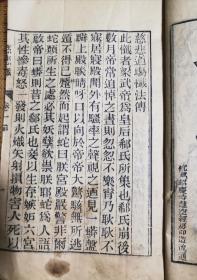 慈悲道場懺法傳
此懺者梁武帝爲皇后郗氏所集也郗氏崩後
數月帝常追悼之晝則忽忽不樂宵乃耿耿不
寐居寢殿聞外有騷窣之聲視之乃見一蟒盤
躃上殿睒睛呀口以向於帝帝大驚駭無所逃
遁不得已蹶然而起謂蛇曰朕宮殿嚴警非爾
蛇類所生之處必其妖孽欲祟朕耶蛇爲人語
啟帝曰蟒則昔之郗氏也妾以生存嫉妒六宮
其性慘毒怒一發則火熾矢射損物害人死以
慈悲懺 卷一
杭州昭慶寺慧空經房印造流通